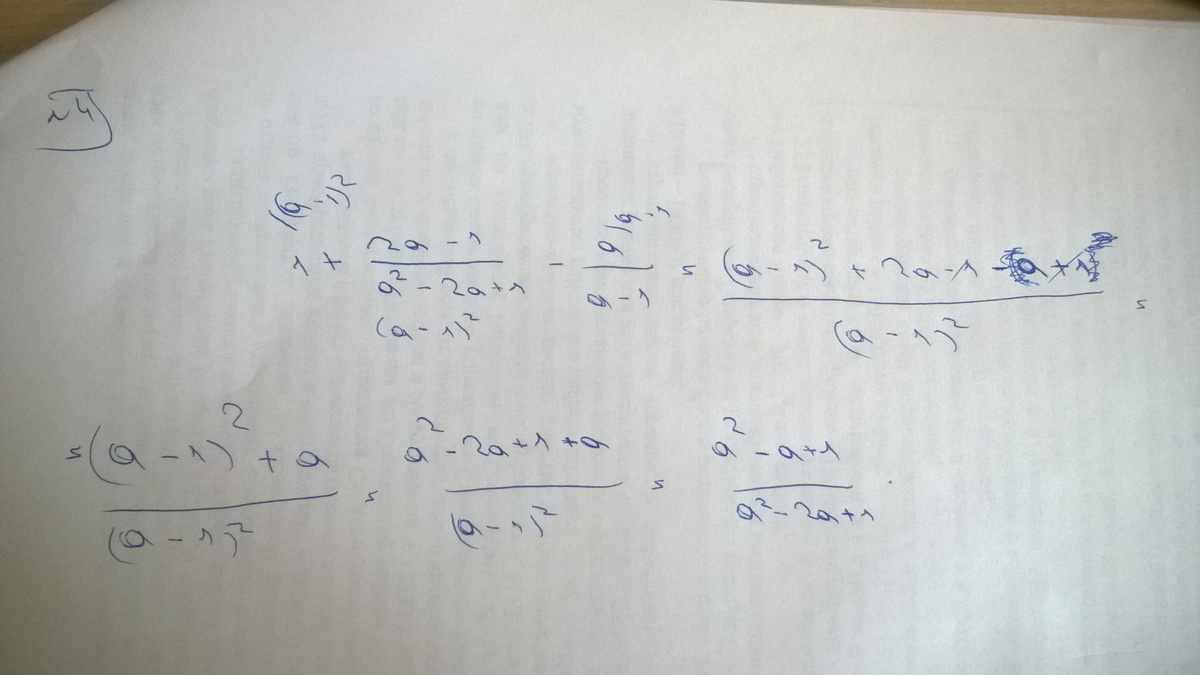 №4
1 /(a-1)² + (2a-1)/(a²-2a+1) - a /a-1 /(a-1) = ((a-1)² + 2a-1 -a+1)/(a-1)² =
(a-1)²
= ((a-1)² + a)/(a-1)² = (a²-2a+1+a)/(a-1)² = (a²-a+1)/(a²-2a+1).